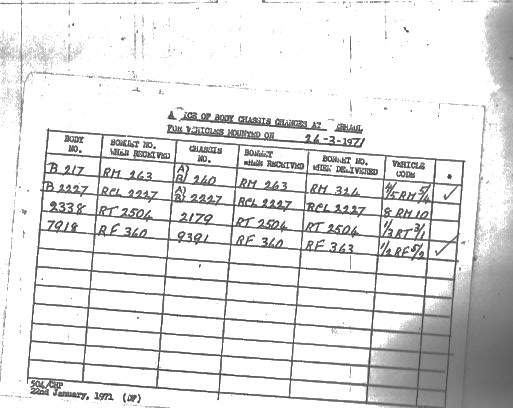 ICE OF BODY CHASSIS CHANGES AT
FOR VEHICLES MOUNTED ON 26-3-1971
BODY NO. BONNET NO. WHEN RECEIVED CHASSIS NO. BONNET WHEN RECEIVED BONNET NO. WHEN DELIVERED VEHICLE CODE
B 217 RM 263 A) B) 240 RM 263 RM 314 4/5 RM 5/4 ✓
B 2227 RCL 2227 A) B) 2227 RCL 2227 RCL 2227 8 RM 10
2338 RT 2504 2179 RT 2504 RT 2504 1/3 RT 3/1
7918 RF 360 9391 RF 360 RF 363 1/2 RF 5/2 ✓
504/CHP
22nd January, 1971 (DF)